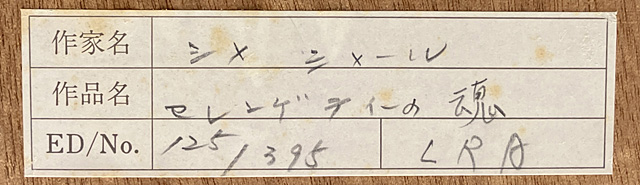 作家名 シメ シメール
作品名 セレンゲティーの魂
ED/No. 125/395 LRA